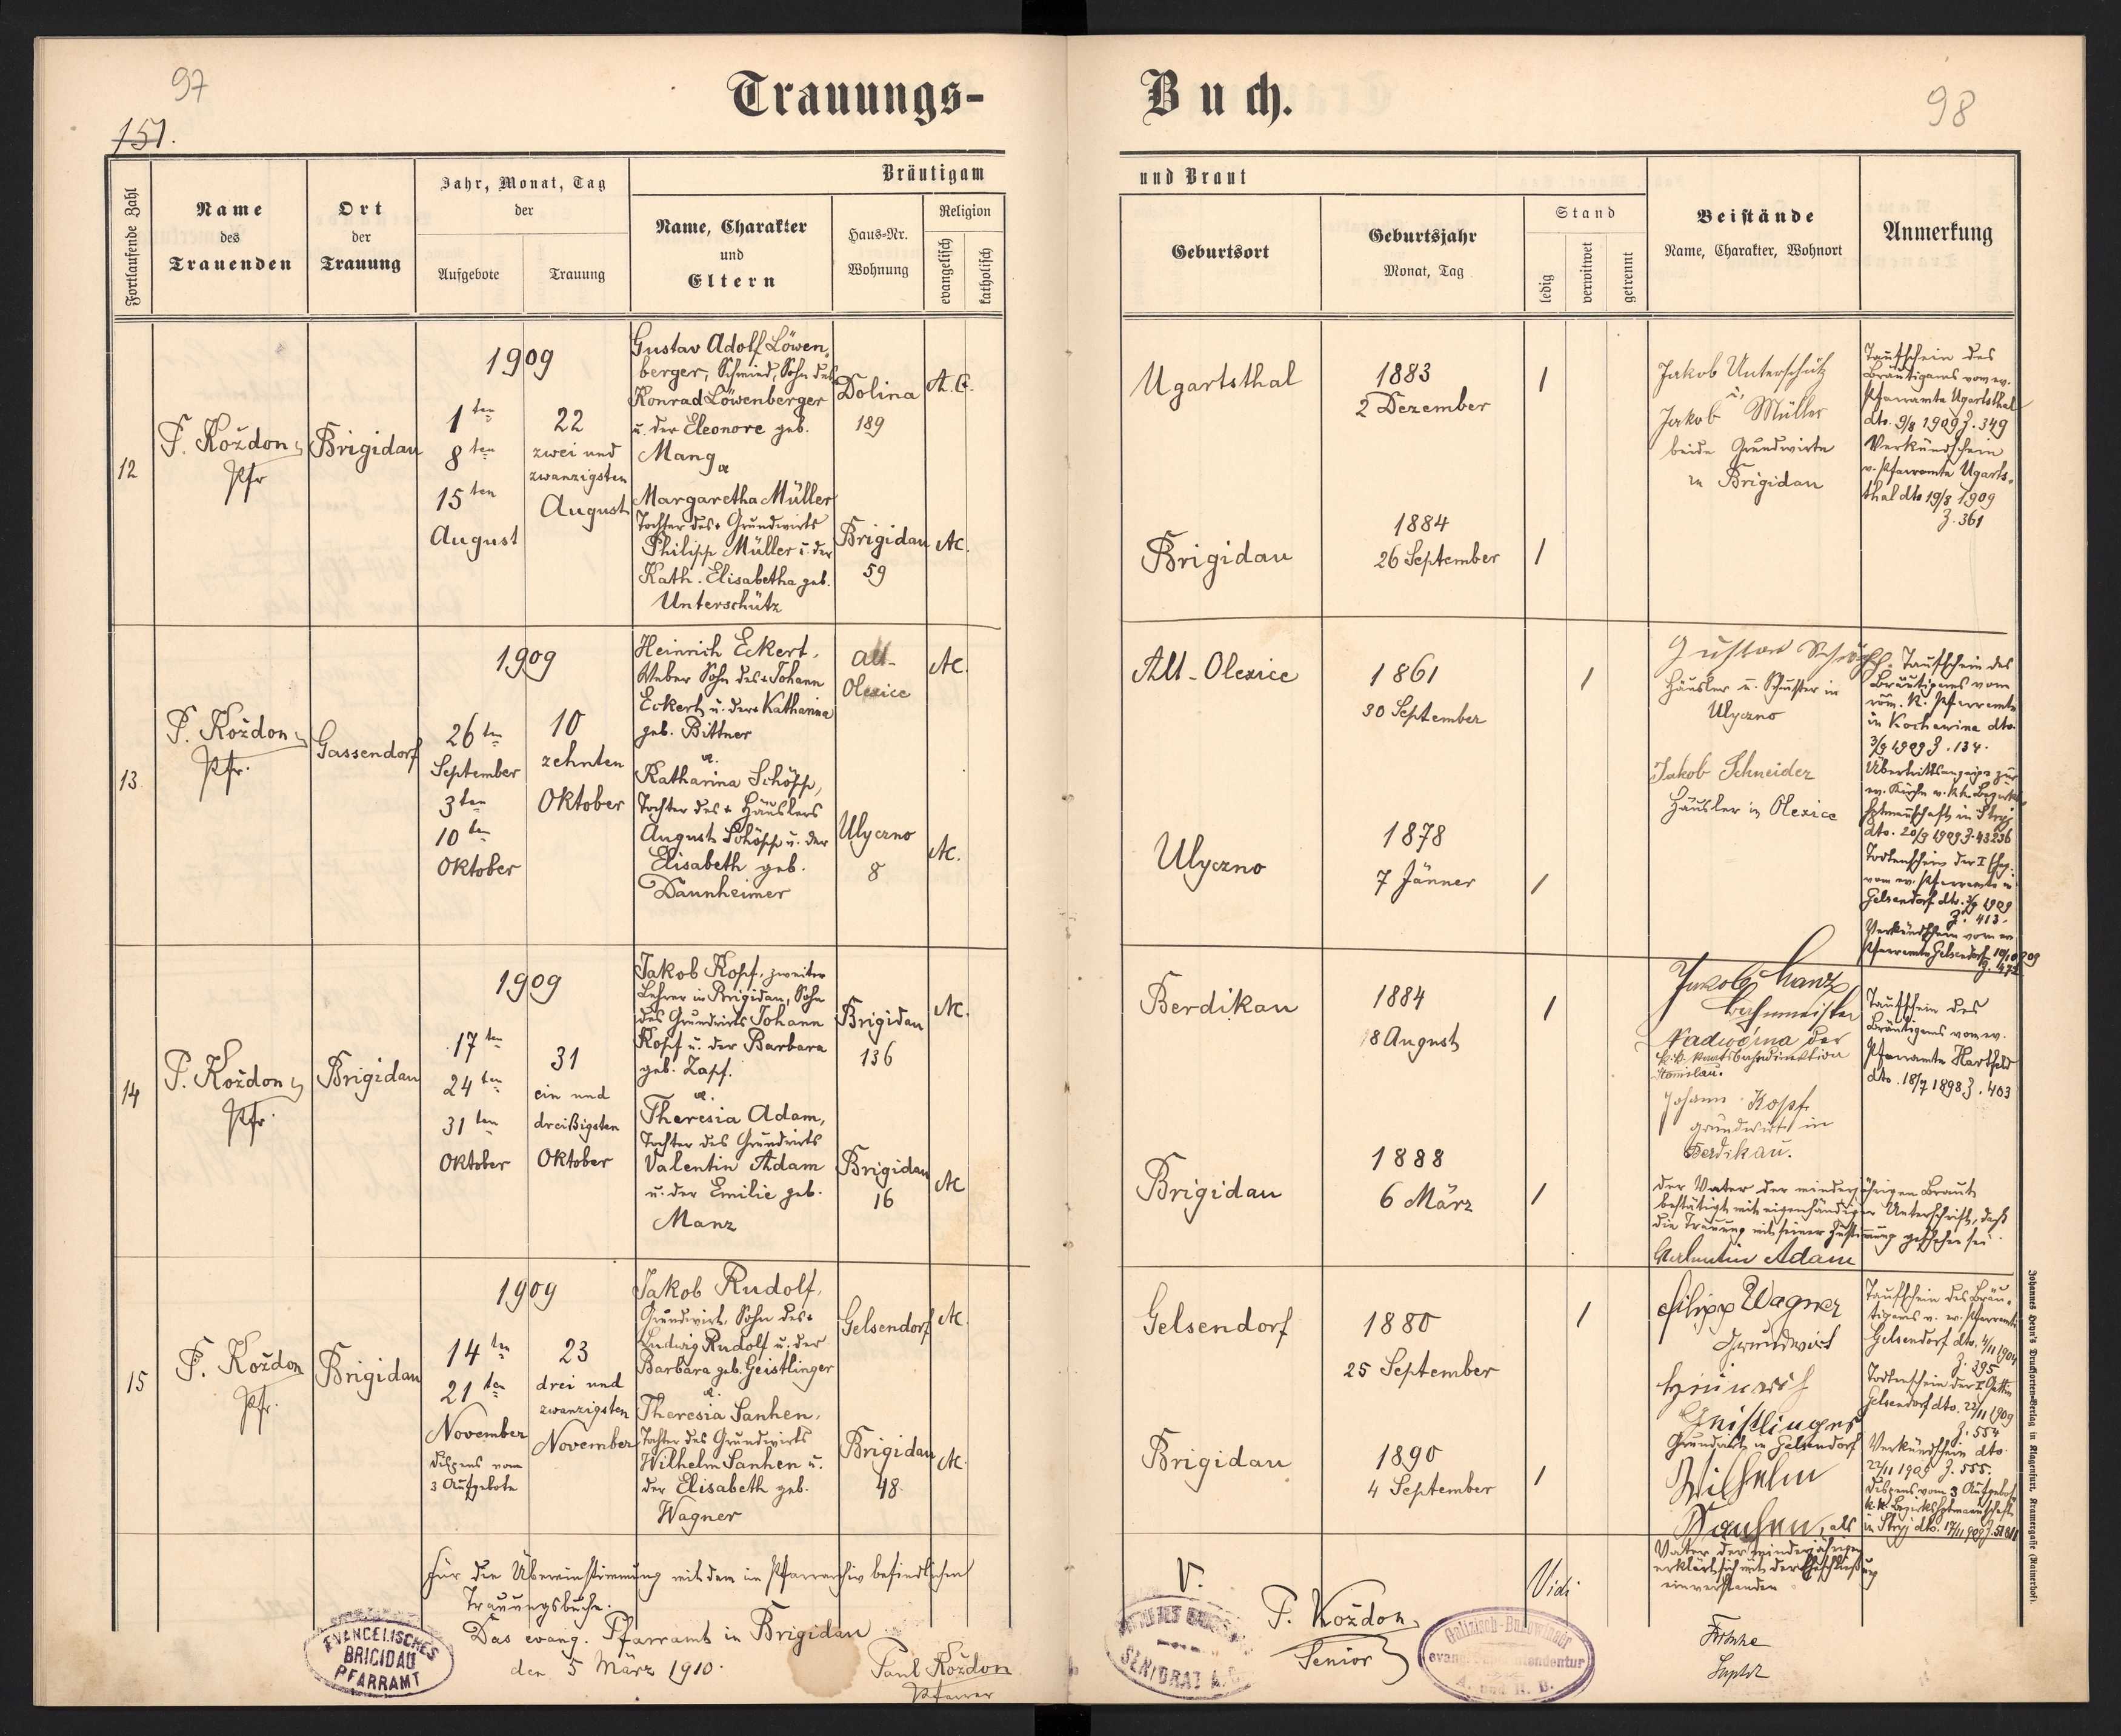 97
Trauungs-
151.
Fortlaufende Zahl
Name
des
Trauenden
Ort
der
Trauung
Jahr, Monat, Tag
der
Aufgebote
Trauung
Bräutigam
Name, Charakter
und
Eltern
Haus-Nr.
Wohnung
Religion
evangelisch
katholisch
12
P. Koždon
Pfr
Brigidau
1909
1ten
8ten
15ten
August
22
zwei und
zwanzigsten
August
Gustav Adolf Löwen-
berger, Schmied, Sohn des
Konrad Löwenberger
u. der Eleonore geb.
Mang
Margaretha Müller
Tochter des + Grundwirts
Philipp Müller u. der
Kath. Elisabetha geb.
Unterschütz
Dolina
189
A. C.
Brigidau
59
AC.
13
P. Koždon
Pfr.
Gassendorf
1909
26ten
September
3ten
10ten
Oktober
10
zehnten
Oktober
Heinrich Eckert,
Weber Sohn des + Johann
Eckert u. der + Katharina
geb. Bittner
u.
Katharina Schöpp,
Tochter des + Häuslers
August Schöpp u. der
Elisabeth geb.
Daunheimer
Alt-
Olexice
AC.
Ulyczno
8
AC.
14
P. Koždon
Pfr.
Brigidau
1909
17ten
24ten
31ten
Oktober
31
ein und
dreißigsten
Oktober
Jakob Kopf, zweiter
Lehrer in Brigidau, Sohn
des Grundwirts Johann
Kopf u. der Barbara
geb. Zapf.
u.
Theresia Adam,
Tochter des Grundwirts
Valentin Adam
u. der Emilie geb.
Manz
Brigidau
136
AC.
Brigidau
16
AC
15
P. Koždon
Pfr.
Brigidau
1909
14ten
21ten
November
Dispens vom
3 Aufgebote
23
drei und
zwanzigsten
November
Jakob Rudolf,
Grundwirt, Sohn des +
Ludwig Rudolf u. der
Barbara geb. Geistlinger
u.
Theresia Sanhen,
Tochter des Grundwirts
Wilhelm Sanhen u.
der Elisabeth geb.
Wagner
Gelsendorf
AC.
Brigidau
48.
AC.
Für die Übereinstimmung mit dem im Pfarrarchiv befindlichen
Trauungsbuche.
Das evang. Pfarramt in Brigidau
den 5 März 1910.
Paul Koždon
Pfarrer
EVANGELISCHES
BRIGIDAU
PFARRAMT
Buch.
98
und Braut
Geburtsort
Geburtsjahr
Monat, Tag
Stand
ledig
verwitwet
getrennt
Beistände
Name, Charakter, Wohnort
Anmerkung
Ugartsthal
1883
2 Dezember
1
Brigidau
1884
26 September
1
Jakob Unterschütz
u.
Jakob Müller
beide Grundwirte
in Brigidau
Taufschein des
Bräutigams vom ev.
Pfarramte Ugartsthal
dto. 9/8 1909 Z. 349
Verkündschein
v. Pfarramte Ugarts-
thal dto 19/8 1909
Z. 361
Alt-Olexice
1861
30 September
1
Ulyczno
1878
7 Jänner
1
Gustav
Häusler u. Schuster in
Ulyczno
Jakob Schneider
Häusler in Olexice
Taufschein des
Bräutigams vom
röm. K. Pfarramte
in Kochawina dto.
3/9 1909 Z. 134.
Übertrittsanzeige zur
ev. Kirche v. kk. Bezirks-
hptmannschaft in Stryj
dto. 20/9 1909 Z. 43236
Todtenschein der I
vom ev. Pfarramte in
Gelsendorf dto. 1909
Z. 413.
Verkündschein vom ev
Pfarramte Gelsendorf 10/10 909
Berdikau
1884
18 August
1
Brigidau
1888
6 März
1
Jakob Manz
Bahnmeister
Nadwórna der
k.k. Staatsbahndirektion
Stanislau.
Johann Kopf
Grundwirt in
Berdikau.
Taufschein des
Bräutigams vom ev.
Pfarramte Hartfeld
dto. 18/7 1898 Z. 403
der Vater der minderjährigen Braut
bestätigt mit eigenhändiger Unterschrift, daß
die Trauung mit seiner Zustimmung geschehen sei.
Valentin Adam
Gelsendorf
1880
25 September
1
Brigidau
1890
4 September
1
Filipp Wagner
Grundwirt
Heinrich
Geistlinger
Grundwirt in Gelsendorf
Wilhelm
Sanhen, als
Vater der minderjährigen
erklärt sich mit der Eheschließung
einverstanden
Taufschein des Bräu-
tigams v. ev. Pfarramte
Gelsendorf dto. 4/11 1904
Z. 395
Todtenschein der I Gattin
Gelsendorf dto. 22/11 1909
Z. 554
Verkündschein dto.
22/11 1909 Z. 555.
Dispens vom 3 Aufgebot
k.k. Bezirkshptmannschaft
in Stryj dto. 17/11 909 Z. 51811
V.
P. Koždon
Senior
SENIORAT A.B.
Vidi
Galizisch-Bukowinaer
evang. Superintendentur
A. und H. B.
Fritsche
Suptdt
Johannes Heyn's Drucksorten-Verlag in Klagenfurt, Kramergasse (Rainerhof).